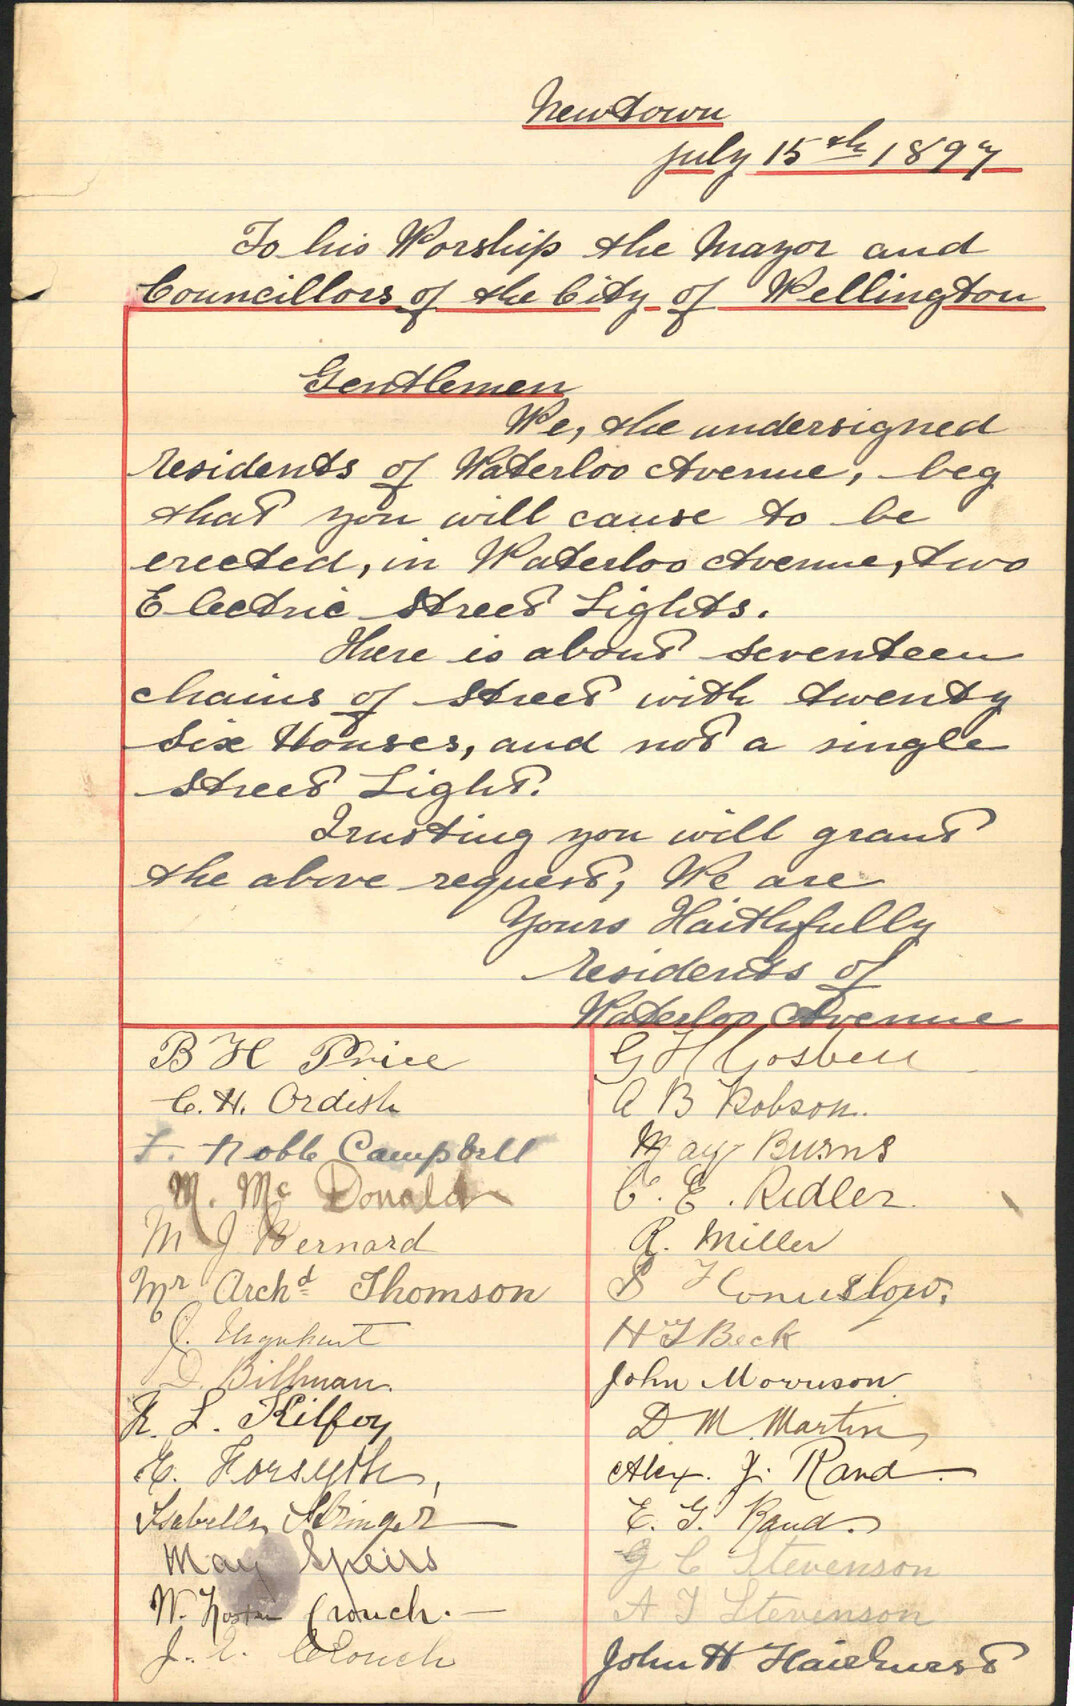 Newtown
July 15th 1897
To his Worship the Mayor and
Councillors of the City of Wellington
Gentlemen
We, the undersigned
residents of Waterloo Avenue, beg
that you will cause to be
erected, in Waterloo Avenue, two
Electric Street Lights.
There is about seventeen
chains of street with twenty
six Houses, and not a single
street Light.
Trusting you will grant
the above request, We are
Yours Faithfully
residents of
Waterloo Avenue
B H Price
C. H. Ordish
F. Noble Campbell
M. Mc Donald
M J Bernard
Mr Archd Thomson
J. Urquhart
D. Billman.
R. L. Kilfoy
E. Forsyth,
Isabella Stringer
May Speirs
W. Foster Crouch.
J. E. Crouch
G H
A B Robson.
May Burns
C. E. Ridler.
R. Miller
S
H T Beck
John Morrison
D M Martin
Alex. J. Rand.
E. G. Rand.
G C Stevenson
A T Stevenson
John H Fairhurst